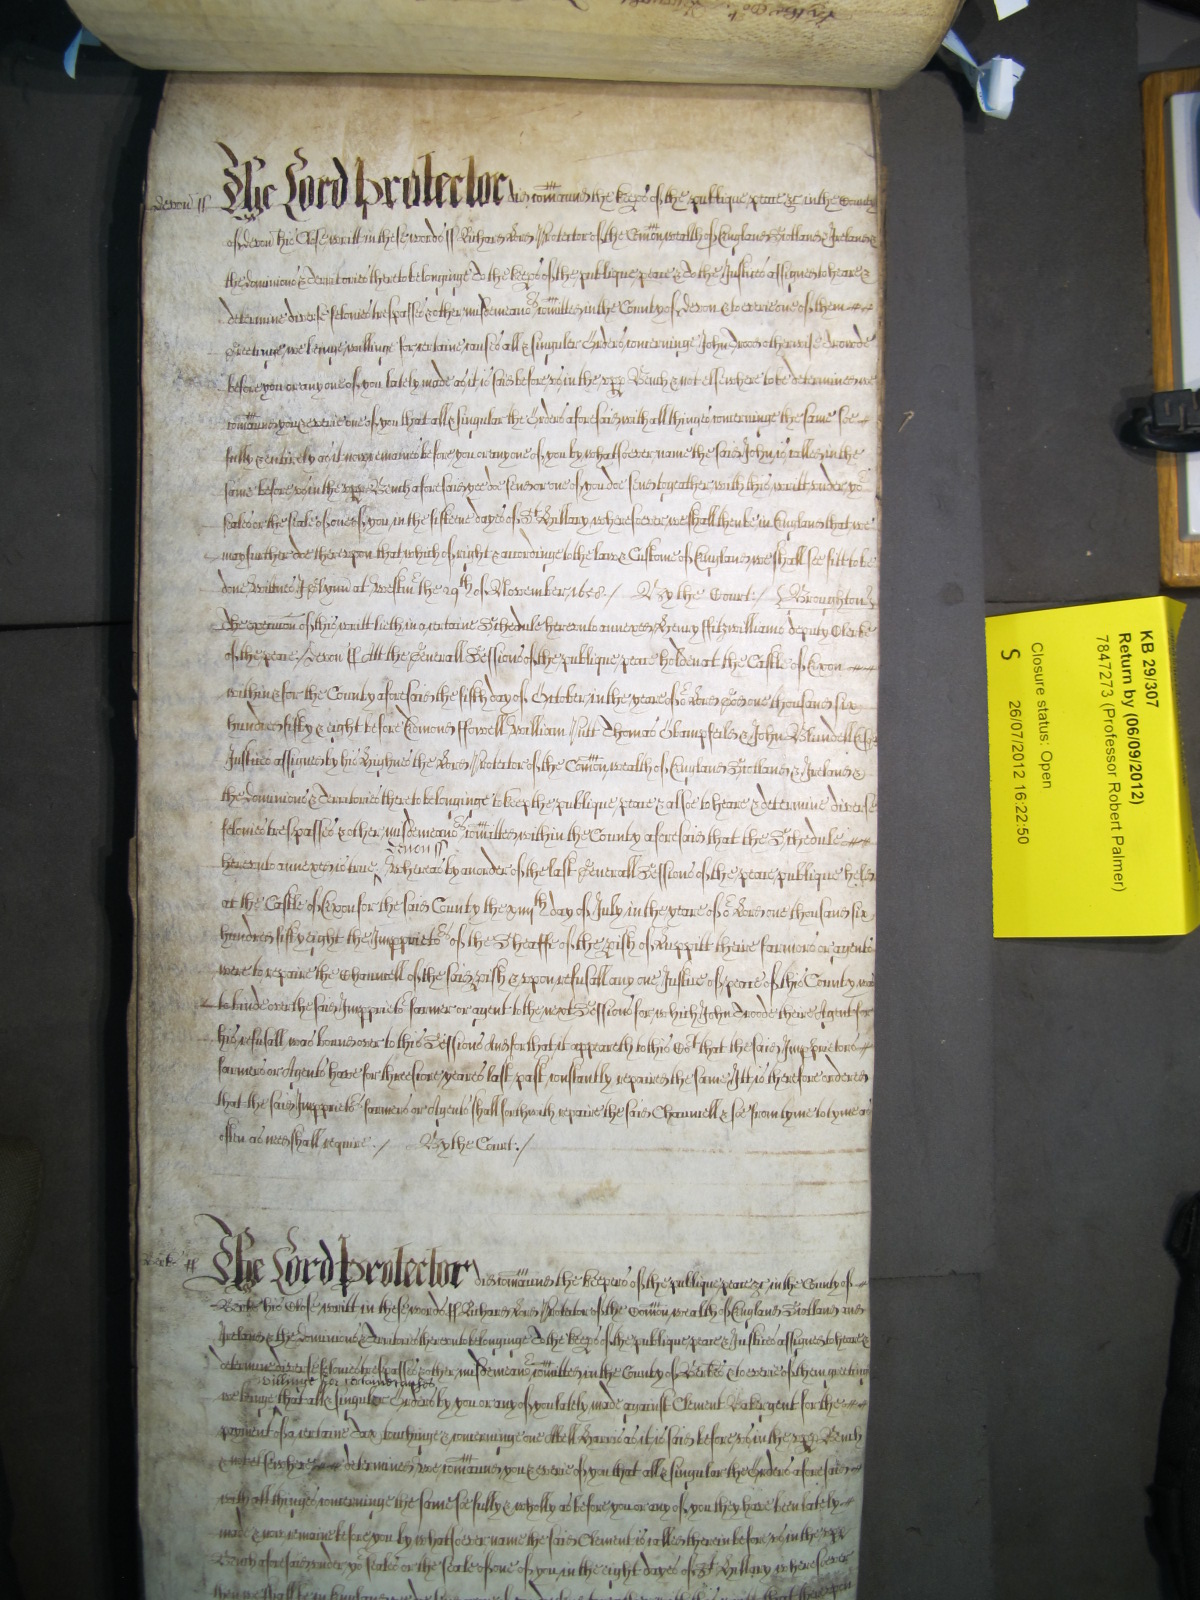 Devon ss The Lord Protector did com̄aund the keeps of the publique peace &c in the County
of Devon his Close writt in these words ss Richard Lord Protector of the Com̄on wealth of England Scotland & Ireland &
the dominions & Territories thereto belonginge To the keeps of the publique peace & To the Justices assigned to heare &
determine diverse felonies trespasses & other misdemeano's com̄itted in the County of Devon & to everie one of them
Greetinge we beinge willinge for certaine causes all & singuler Orders concerninge John Drood otherwise Drowde
before you or any one of you lately made as it is said before us in the upp Bench & not elsewhere to be determined we
com̄aund you & everie one of you that all & singuler the Orders aforesaid with all things concerninge the same soe
fully & entirely as it now remaines before you or any one of you by whatsoever name the said John is called in the
same before us in the upp Bench aforesaid yee doe send or one of you doe send togeather with this writt under yo'
seales or the seale of one of you in the fifteene dayes of St Hillary wheresoever we shall then be in England that we
may further doe thereupon that which of right & accordinge to the lawe & Custome of England we shall see fitt to be
done Witnes J Glynn at Westm' the 29th of November 1658 / By the Court / Broughton
The execuc̄on of this writt lieth in a certaine Schedule hereunto annexed Henry ffitzwilliams deputy Clerke
of the peace / Devon ss Att the Generall Sessions of the publique peace holden at the Castle of Exon
within & for the County aforesaid the fifth day of October in the yeare of o' Lord God one thousand six
hundred fifty & eight before Edmond ffowell William Putt Thomas Stampfeild & John Blundell Esqs
Justices assigned by his Highnes the Lord Protector of the Com̄on wealth of England Scotland & Ireland &
the Dominions & Territories thereto belonginge to keep the publique peace & alsoe to heare & determine diverse
felonies trespasses & other misdemeano's com̄itted within the County aforesaid that the Schedule
Devon ss
hereunto annexed is true Whereas by an order of the last Generall Sessions of the peace publique held
at the Castle of Exon for the said County the xiijth day of July in the yeare of o' Lord one thousand six
hundred fifty eight the Imppriето's of the Sheaffe of the pish of Luppitt theire farmors or agents
were to repaire the Chauncell of the said pish & upon refusall any one Justice of peace of this County was
to binde over the said Imppriето' farmer or agent to the next Sessions for which John Droode theire Agent for
his refusall was bound over to this Sessions And for that it appeareth to this Co't that the said Impprietors
farmers or Agents have for threescore yeares last past constantly repaired the same Itt is therefore ordered
that the said Impprieto's farmers or Agents shall forthwith repaire the said Chauncell & soe from tyme to tyme as
often as need shall require / By the Court /
Berk ss The Lord Protector did com̄aund the keepers of the publique peace &c in the County of
Berks his Close writt in these words ss Richard Lord Protector of the Com̄on wealth of England Scotland and
Ireland & the Dominions & Territories thereunto belonginge To the keeps of the publique peace & Justices assigned to heare &
determine diverse felonies trespasses & other misdemeano's com̄itted in the County of Berks & to everie of them greeting
willinge for certaine causes
we beinge that all & singuler Orders by you or any of you lately made against Clement Bakergent for the
payment of a certaine Tax touchinge & concerninge one Nell Harris as it is said before us in the upp Bench
& not elsewhere determined we com̄aund you & everie of you that all & singuler the Orders aforesaid
with all things concerninge the same soe fully & wholly as before you or any of you they have been lately
made & now remaine before you by whatsoever name the said Clement is called therein before us in the upp
Bench aforesaid under yo' seales or the seale of one of you in the eight dayes of St Hillary wheresoever
KB 29/307
Return by (06/09/2012)
7847273 (Professor Robert Palmer)
Closure status: Open
S 26/07/2012 16:22:50